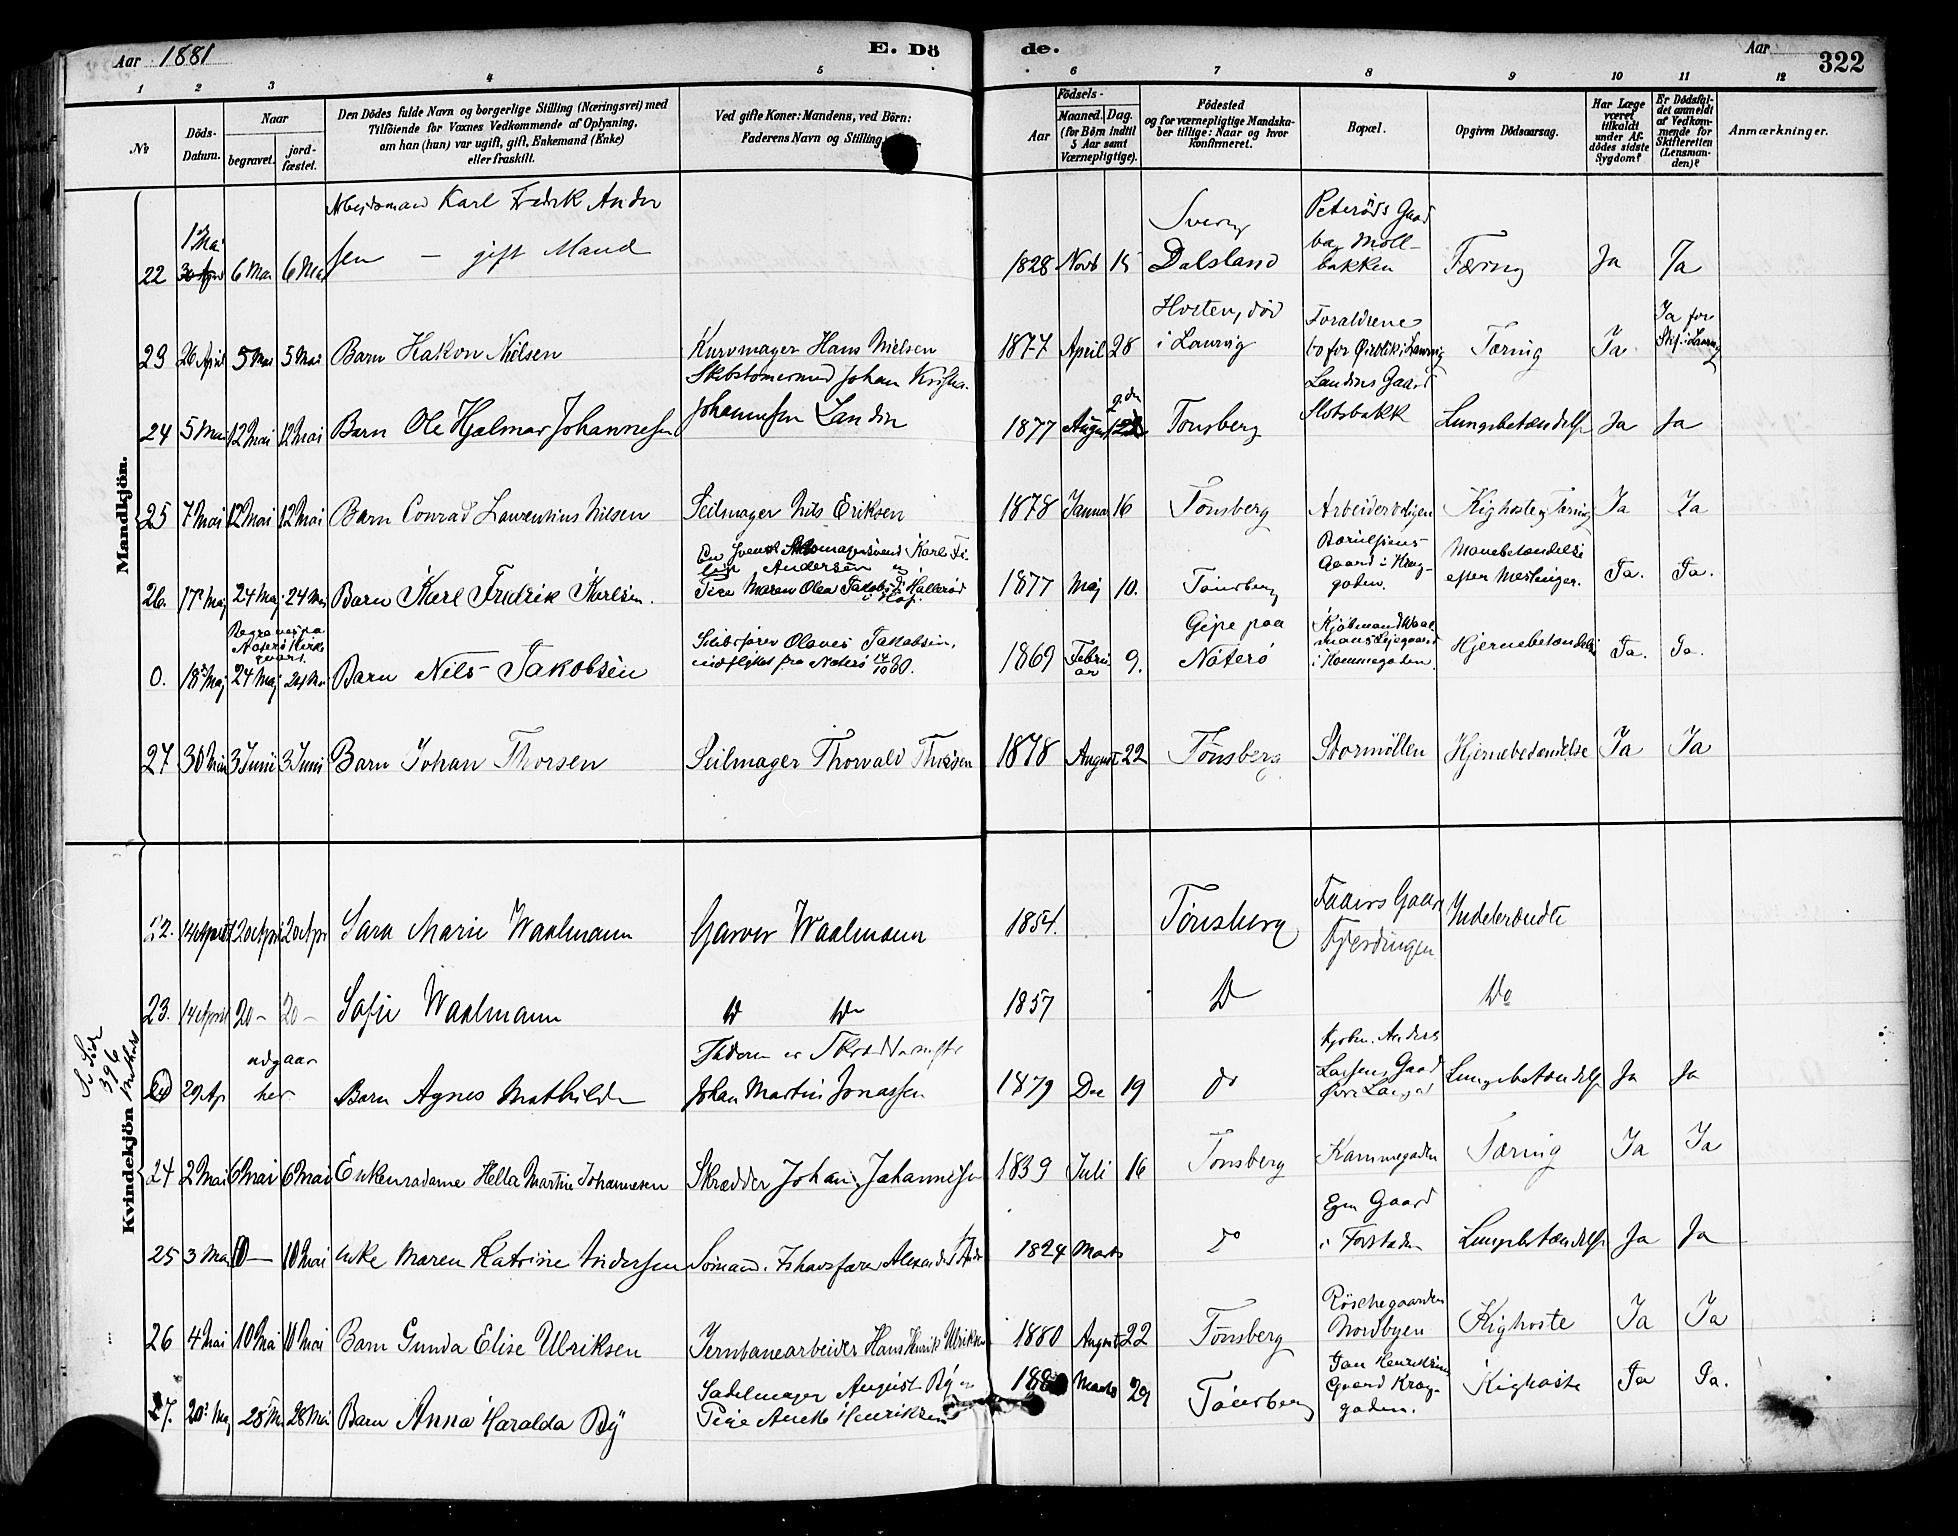 Aar 1881
E. Dö
de.
Aar
322
1 2 3 4 5 6 7 8 9 10 11 12
No
Döds-Datum.
Naar
begravet.
jord-fæstet.
Den Dödes fulde Navn og borgerlige Stilling (Næringsvei) med
Tilföiende for Voxnes Vedkommende af Oplysning,
om han (hun) var ugift, gift, Enkemand (Enke)
eller fraskilt.
Ved gifte Koner: Mandens, ved Börn:
Faderens Navn og Stilling
Födsels-
Aar
Maaned. Dag.
(for Börn indtil
5 Aar samt
Værnepligtige).
Födested
og for værnepligtige Mandska-
ber tillige: Naar og hvor
konfirmeret.
Bopæl.
Opgiven Dödsaarsag.
Har Læge
været
tilkaldt
under Af-
dödes sidste
Sygdom?
Er Dödsfal-
det anmeldt
af Vedkom-
mende for
Skifteretten
(Lensman-
den)?
Anmærkninger.
Mandkjön.
Arbeidsmand Karl Fredrik Ander
Peterøds Gaard
1 Mai
bag Moll-
22 30 April 6 Mai 6 Mai sen – gift Mand 1828 Novb 15 Dalsland bakken Tæring Ja Ja
Ja for
23 26 April 5 Mai 5 Mai Barn Hakon Nielsen Kurvmager Hans Nielsen 1877 April 28 i Laurvig Forældrene Tæring Ja
Landins Gaard
24 5 Mai 12 Mai 12 Mai Barn Ole Hjalmar Johannesen Johannesen Landin 1877 August Tonsberg Slotsbakk Lungebetændelse Ja Ja
25 7 Mai 12 Mai 12 Mai Barn Conrad Laurentius Nilsen Seilmager Nils Eriksen 1878 Januar 16 Tønsberg Arbeiderboligen Kighoste og Tæring Ja Ja
Andersen og
26. 17 Maj 24 Maj 24 Maj Barn Karl Fredrik Karlsen. Pige Maren Olea 1877 Maj 10. Tønsberg Gaard i Krag-
gaden. Mavebetændelse
efter Meslinger. Ja. Ja.
Begravet paa
Nøterø Kirke
gaard.
0. 18 Maj 24 Maj 24 Mai Barn Nils Jakobsen Skibsfører Olaves Jakobsen,
indflyttet fra Nøterø 14/10 80. 1869 Febru
ar 9. Gipe paa
Nøterø i Kammegaden. Hjernebetændelse Ja. Ja.
27 30 Mai 3 Juni 3 Juni Barn Johan Thorsen Seilmager Thorvald Thorsen 1878 August 22 Tønsberg Stormøllen Hjernebetændelse Ja Ja
Kvindekjön
22. 14 April 20 Apr 20 Apr Sara Marie Waalmann Garver Waalmann 1854. Tønsberg Faders Gaard
Fjerdingen Indebrændte
23. 14 April 20 – 20 – Sofie Waalmann Do Do 1857 Do Do
Se Side
396
udgaar
her
29 Ap Barn Agnes Mathilde Faderen er Skræddermester
Johan Martin Jonassen 1879 Dec 19 do Kjøbm. Anders
Larsens Gaard Lungebetændelse Ja Ja
24 2 Mai 6 Mai 6 Mai Enkemadame Hella Martine Johannesen Skrædder Johan Johannesen 1839 Juli 16 Tonsberg Kammegaden Tæring Ja Ja
25 3 Mai 10 – 10 Mai Enke Maren Katrine Andersen Sømand. Ishavsfarer Alexander Ander 1824 Marts do Egen Gaard
i Forstaden Lungebetændelse Ja Ja
26 4 Mai 10 Mai 10 Mai Barn Gunda Elise Ulriksen Jernbanearbeider Hans Henrik Ulriksen 1880 August 22 Tønsberg Nordbyen Kighoste Ja Ja
27. 20 Maj 28 Mai 28 Mai Barn Anna Haralda Ry Sadelmager August Ry og
Pige Anette Henriksen Marts 29 Tønsberg Gaard Krag-
gaden. Kighoste Ja Ja.